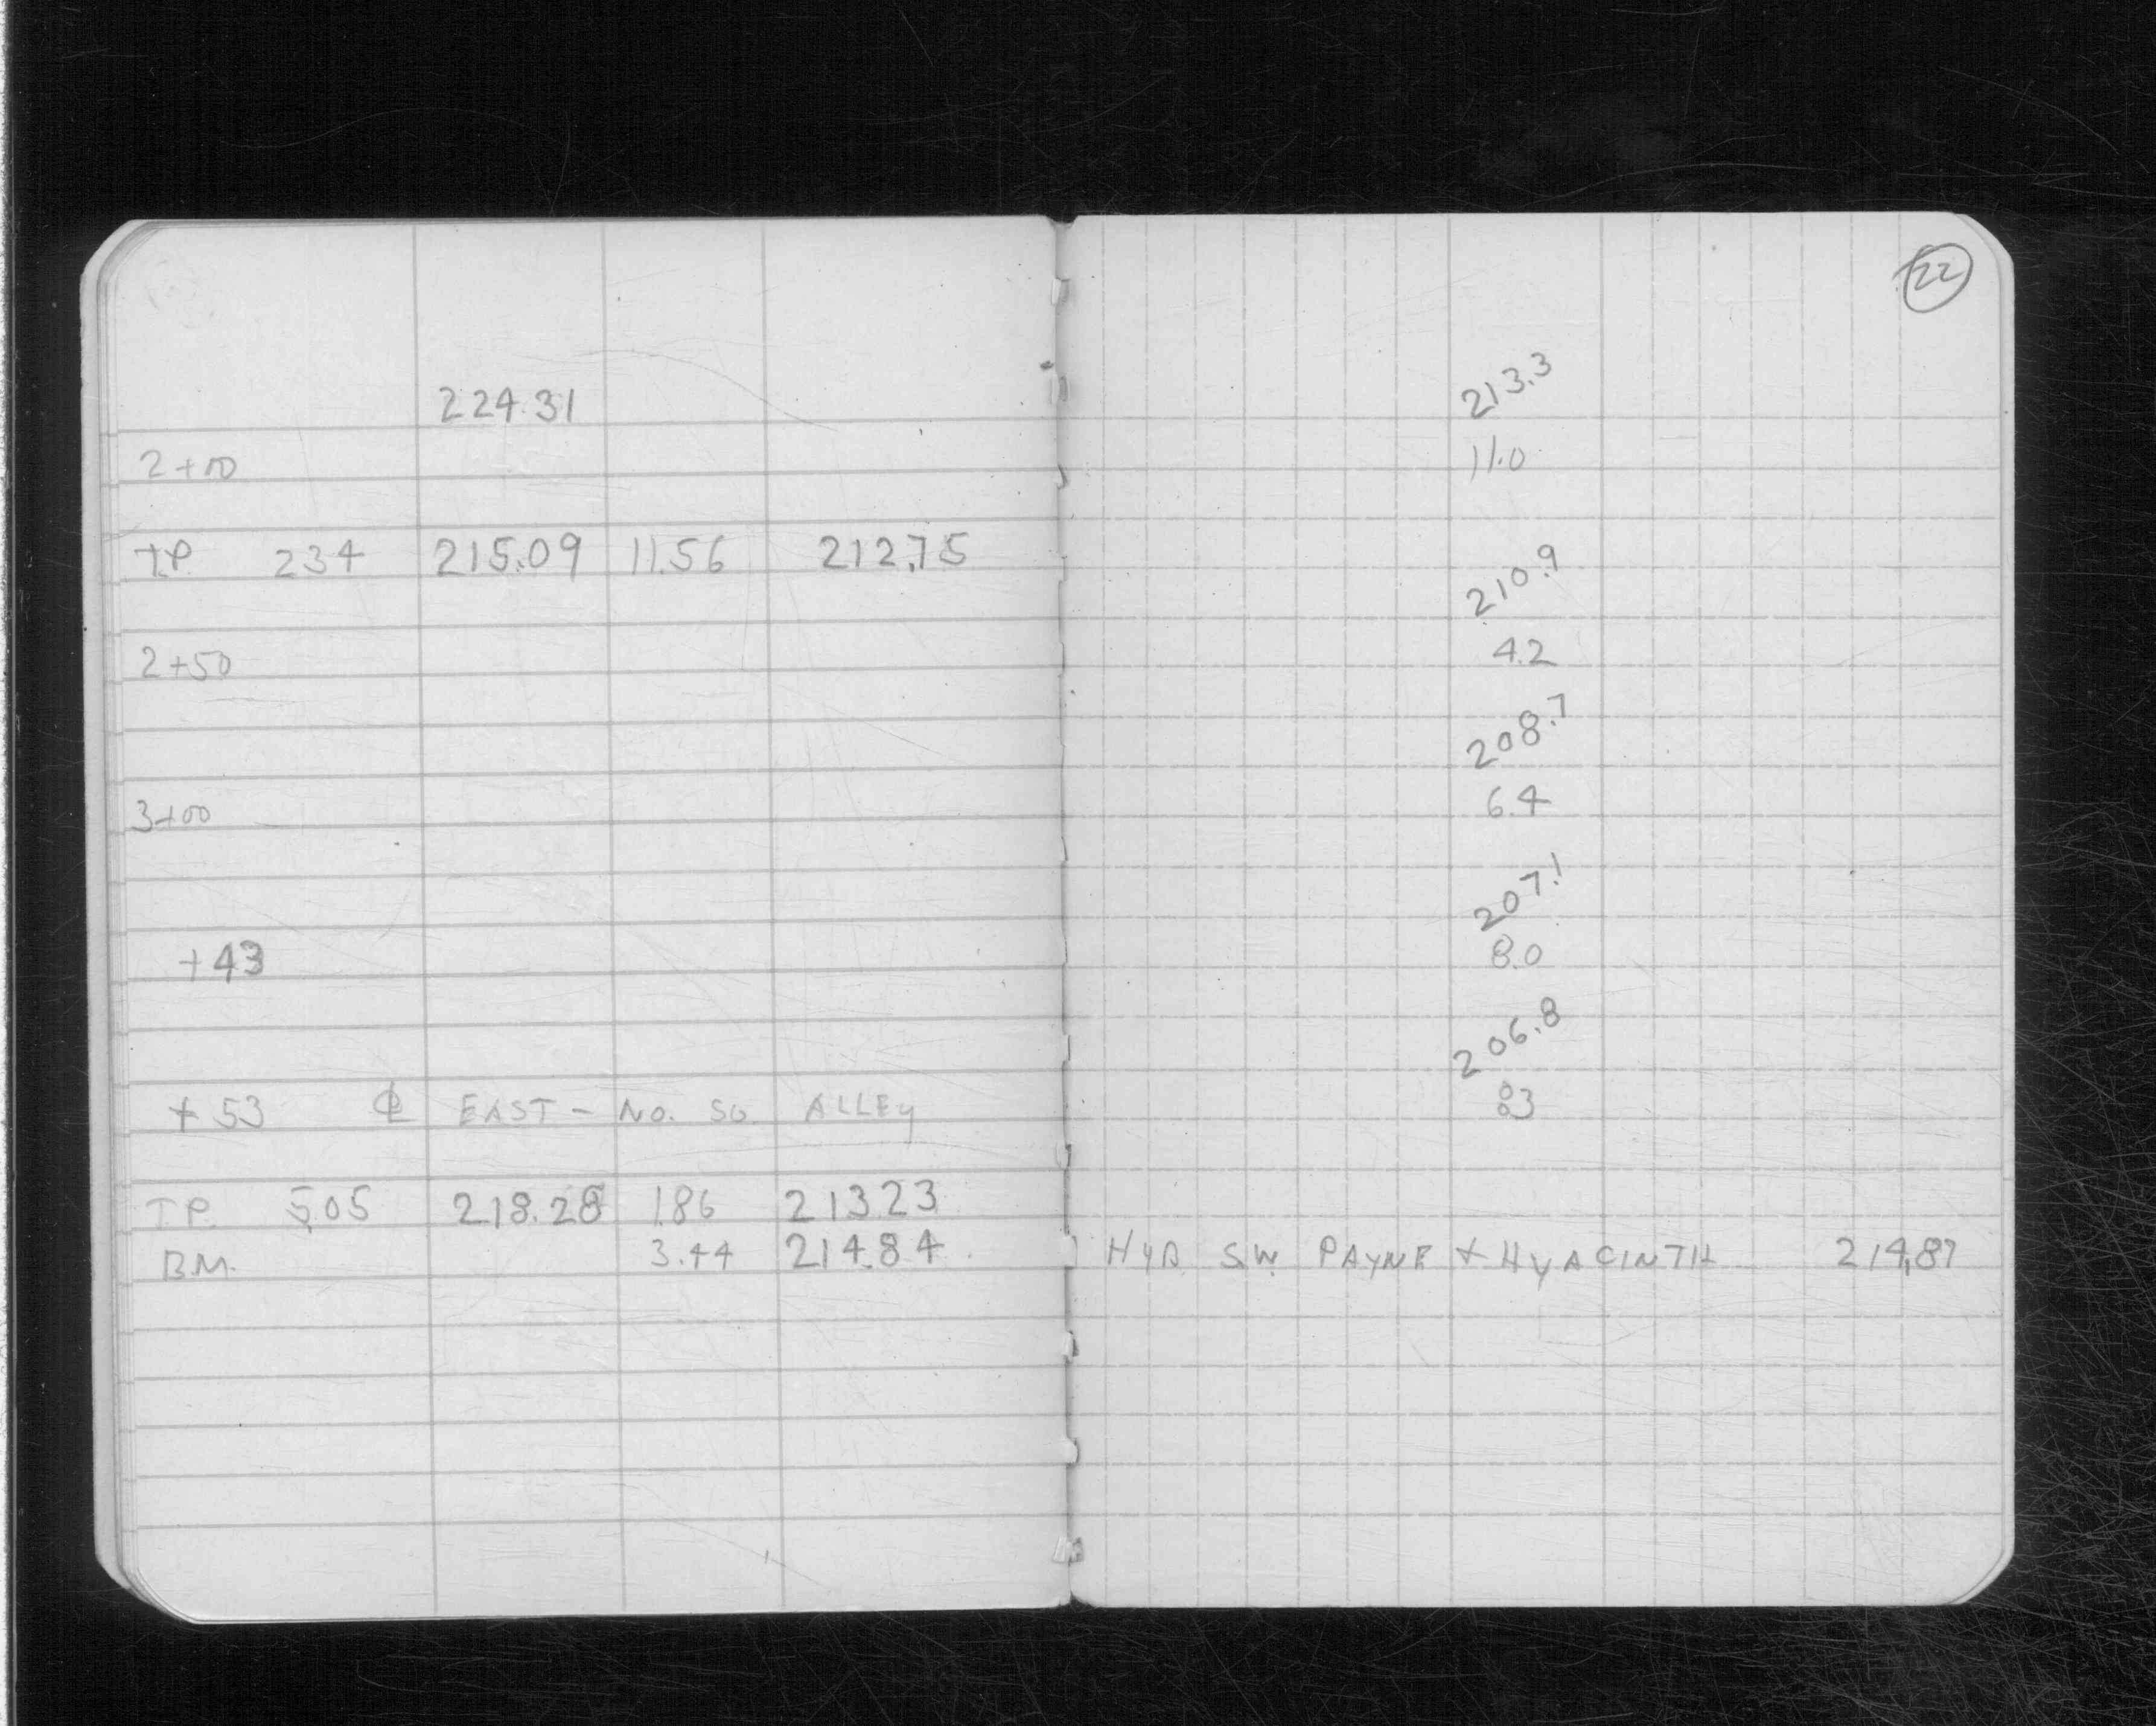 22
224.31 213.3
2+00 11.0
T.P. 2.34 215.09 11.56 212.75
210.9
2+50 4.2
208.7
3+00 6.4
207.1
+43 8.0
206.8
+53 ℄ EAST - NO. SO. ALLEY 8.3
T.P. 5.05 218.28 1.86 213.23
B.M. 3.44 214.84 HYD. S.W. PAYNE + HYACINTH 214.87